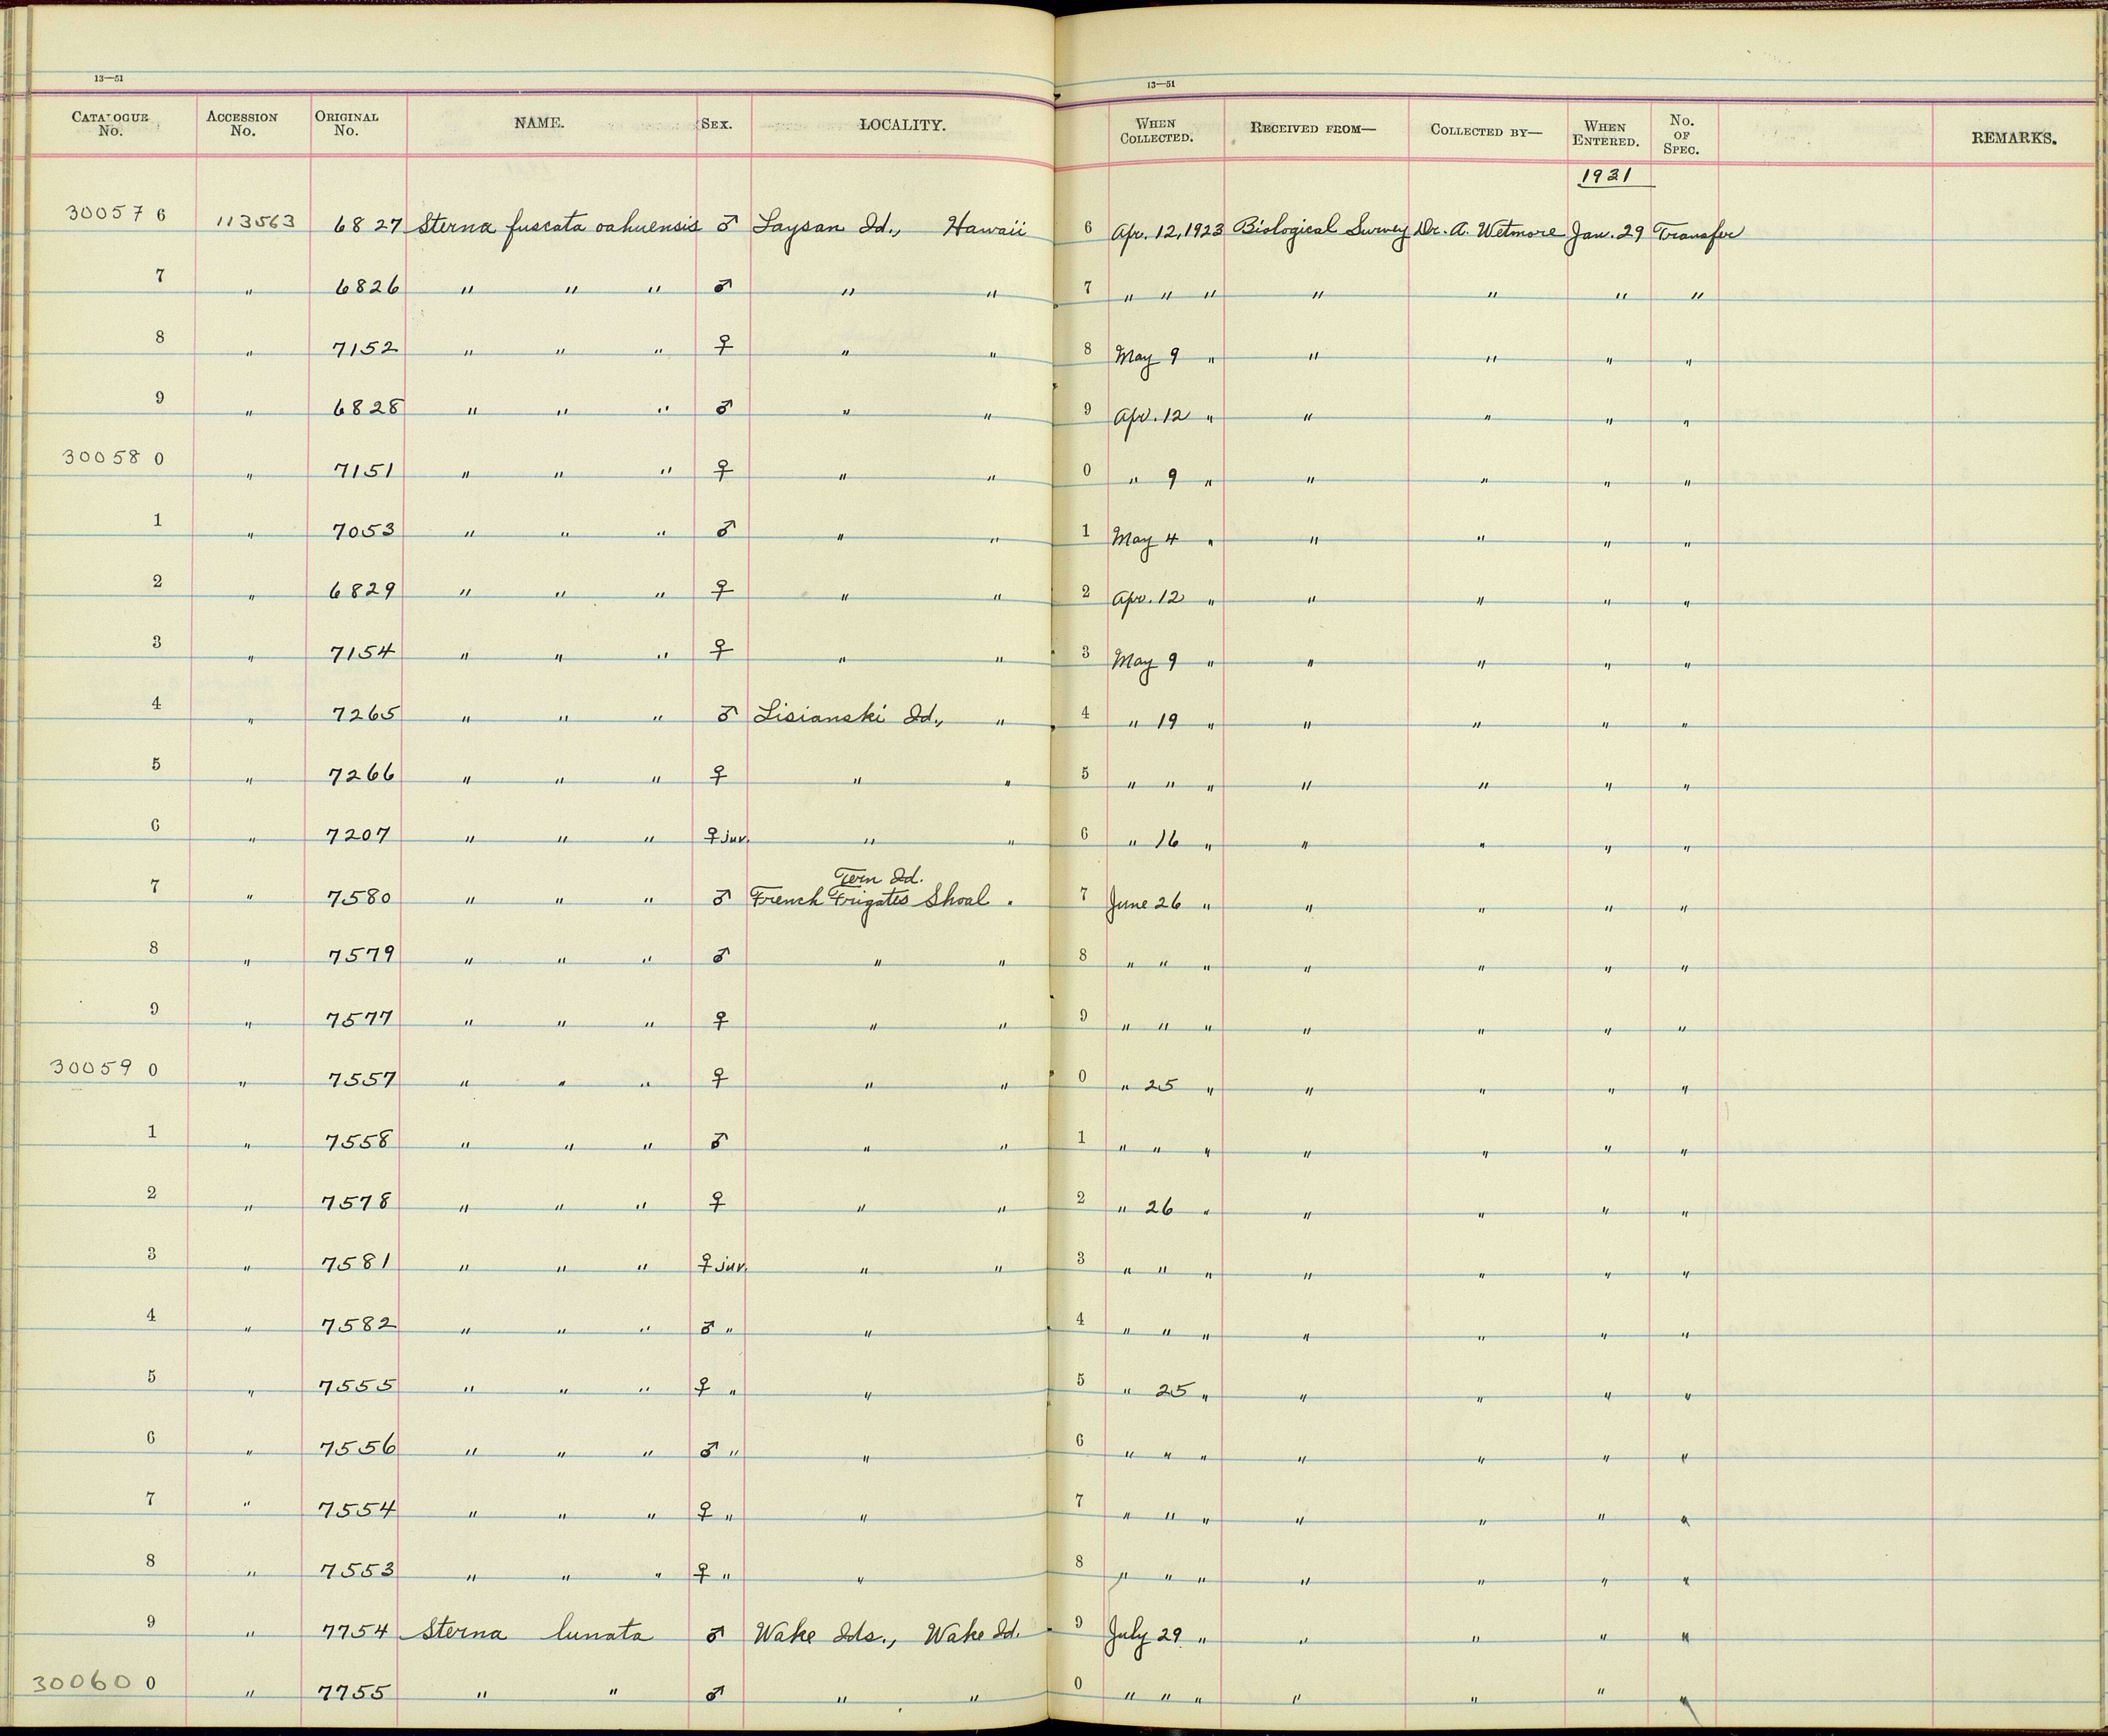 13—51 13—51
CATALOGUE No. ACCESSION No. ORIGINAL No. NAME. SEX. LOCALITY. WHEN COLLECTED. RECEIVED FROM— COLLECTED BY— WHEN ENTERED. No. OF SPEC. REMARKS.
1931
300576 113563 6827 Sterna fuscata oahuensis ♂ Laysan Id., Hawaii 6 Apr. 12, 1923 Biological Survey Dr. A. Wetmore Jan. 29 Transfer
7 " 6826 " " " ♂ " " 7 " " " " " " "
8 " 7152 " " " ♀ " " 8 May 9 " " " " "
9 " 6828 " " " ♂ " " 9 Apr. 12 " " " " "
300580 " 7151 " " " ♀ " " 0 " 9 " " " " "
1 " 7053 " " " ♂ " " 1 May 4 " " " " "
2 " 6829 " " " ♀ " " 2 Apr. 12 " " " " "
3 " 7154 " " " ♀ " " 3 May 9 " " " " "
4 " 7265 " " " ♂ Lisianski Id., " 4 " 19 " " " " "
5 " 7266 " " " ♀ " " 5 " " " " " " "
6 " 7207 " " " ♀ juv. " " 6 " 16 " " " " "
Tern Id.
7 " 7580 " " " ♂ French Frigates Shoal " 7 June 26 " " " " "
8 " 7579 " " " ♂ " " 8 " " " " " " "
9 " 7577 " " " ♀ " " 9 " " " " " " "
300590 " 7557 " " " ♀ " " 0 " 25 " " " " "
1 " 7558 " " " ♂ " " 1 " " " " " " "
2 " 7578 " " " ♀ " " 2 " 26 " " " " "
3 " 7581 " " " ♀ juv. " " 3 " " " " " " "
4 " 7582 " " " ♂ " " 4 " " " " " " "
5 " 7555 " " " ♀ " " 5 " 25 " " " " "
6 " 7556 " " " ♂ " " 6 " " " " " " "
7 " 7554 " " " ♀ " " 7 " " " " " " "
8 " 7553 " " " ♀ " " 8 " " " " " " "
9 " 7754 Sterna lunata ♂ Wake Ids., Wake Id. 9 July 29 " " " " "
300600 " 7755 " " ♂ " " 0 " " " " " " "